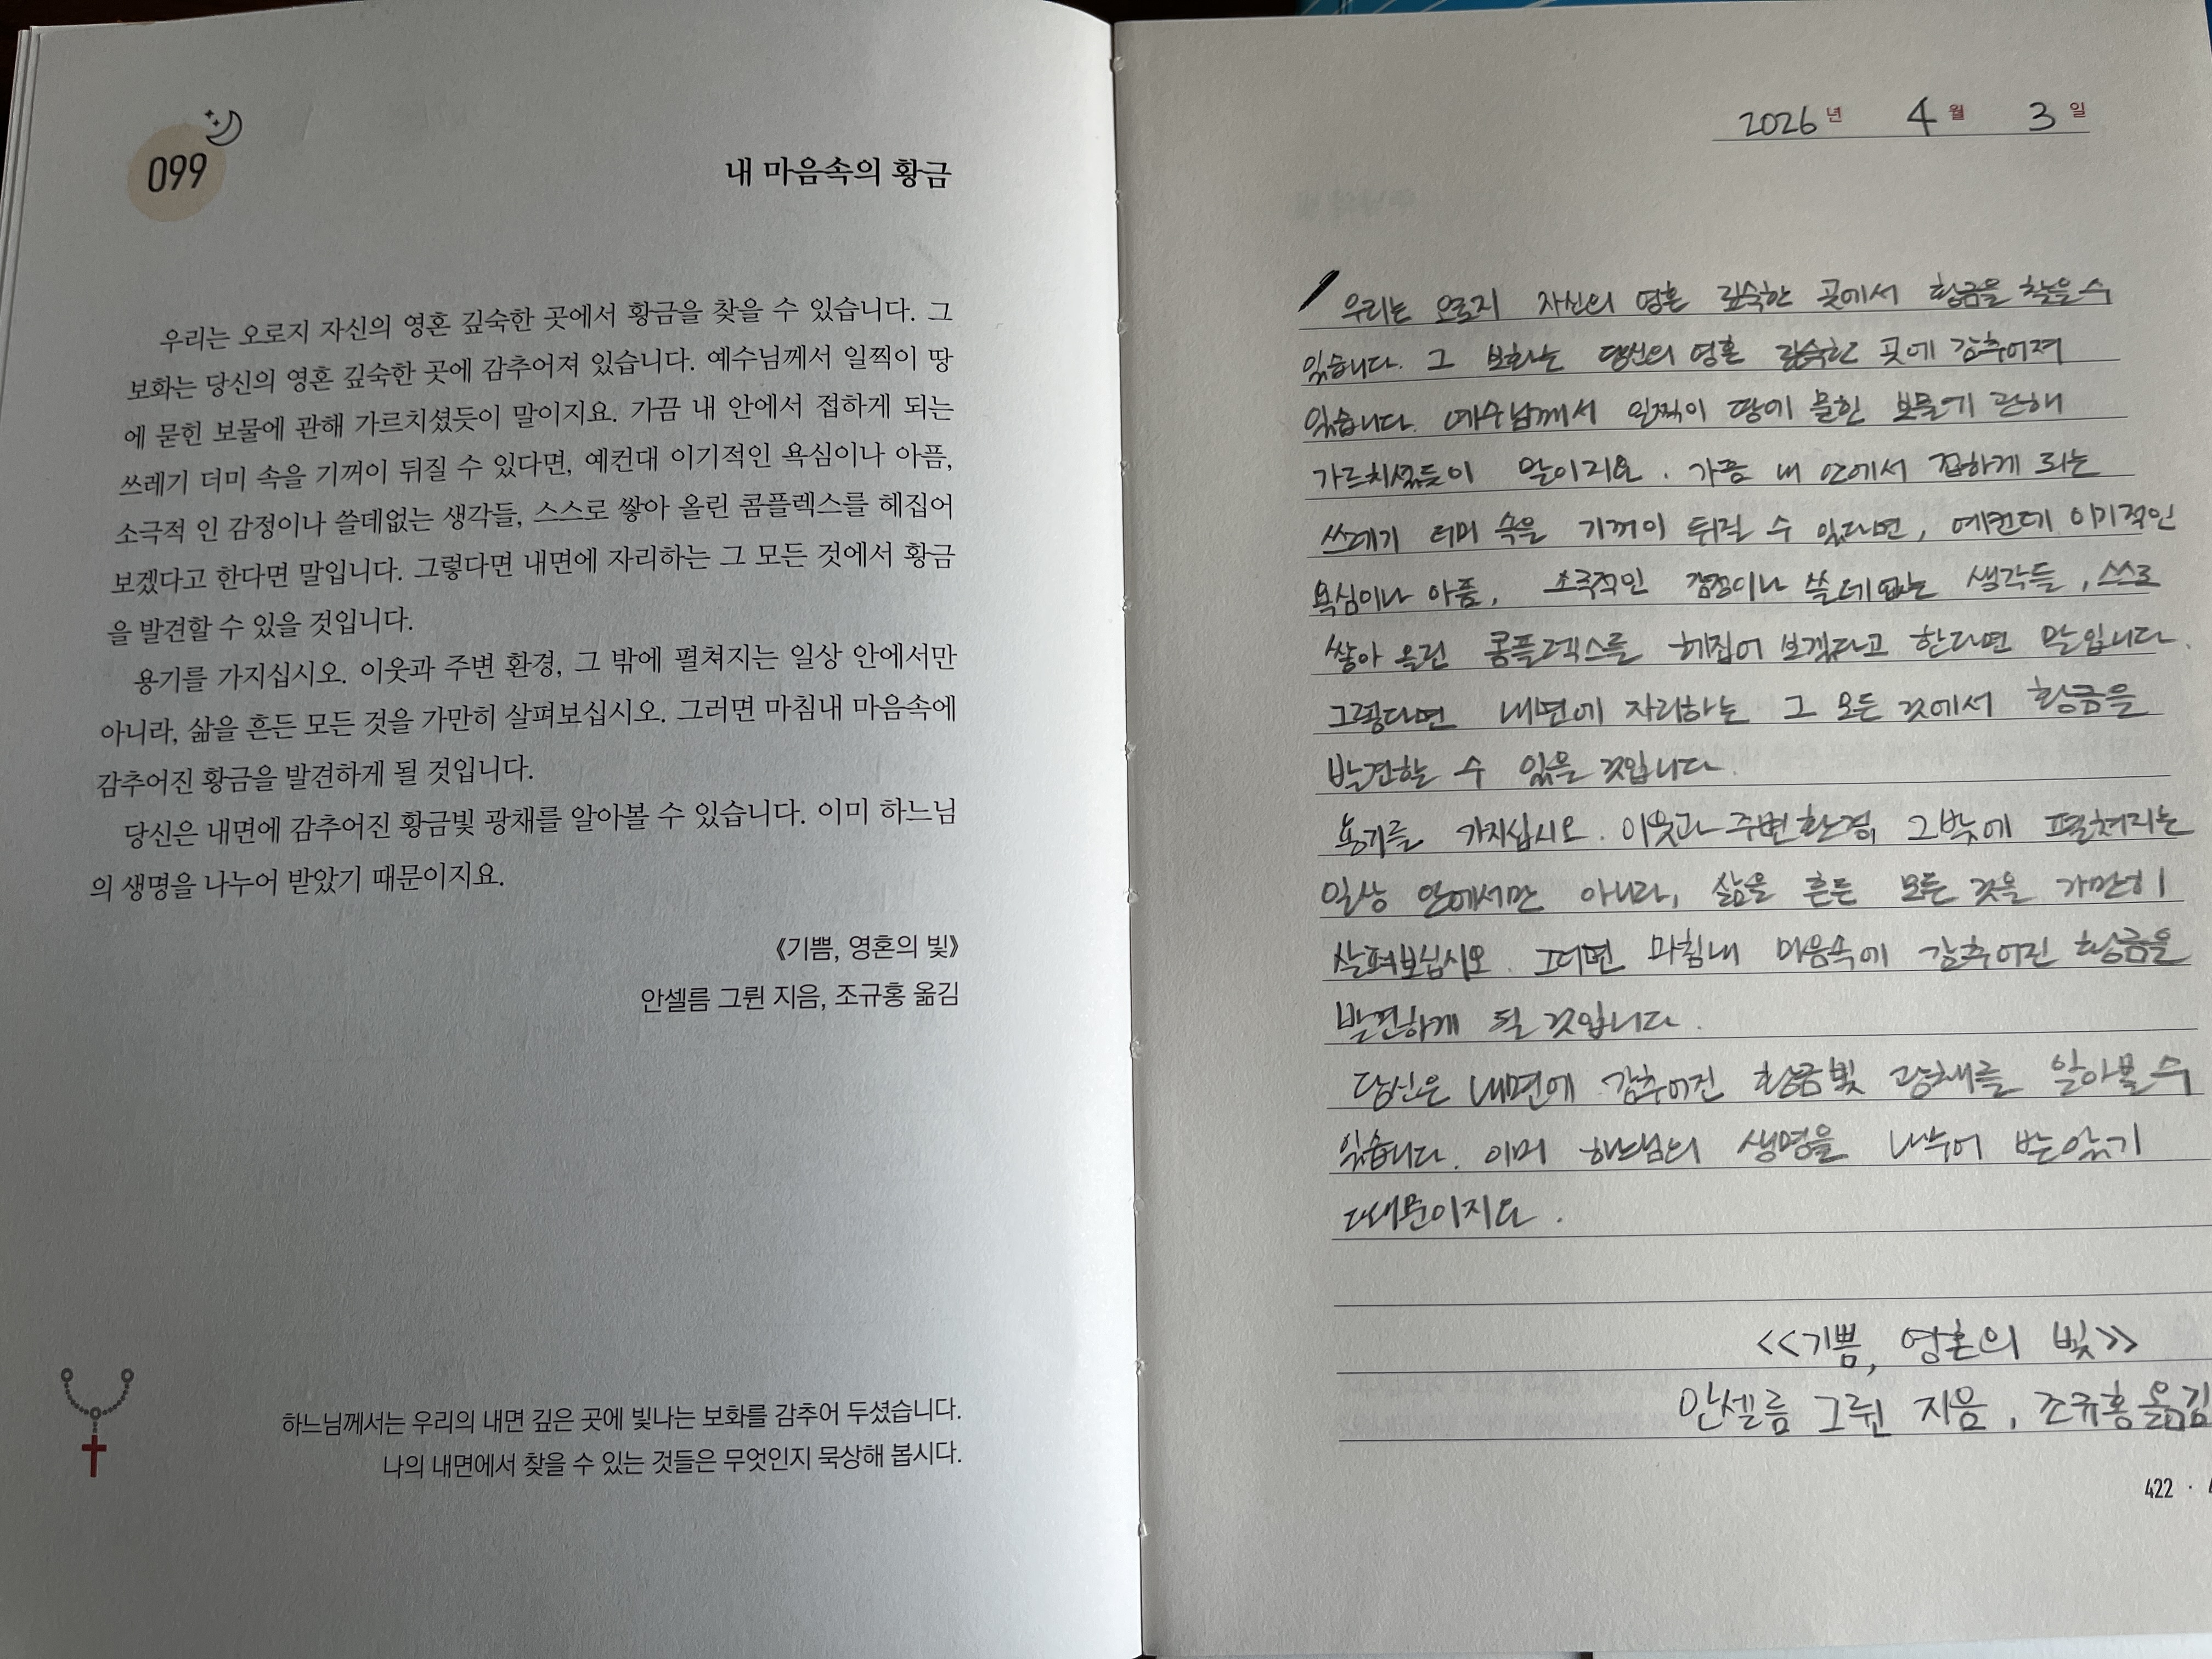 099
내 마음속의 황금
우리는 오로지 자신의 영혼 깊숙한 곳에서 황금을 찾을 수 있습니다. 그
보화는 당신의 영혼 깊숙한 곳에 감추어져 있습니다. 예수님께서 일찍이 땅
에 묻힌 보물에 관해 가르치셨듯이 말이지요. 가끔 내 안에서 접하게 되는
쓰레기 더미 속을 기꺼이 뒤질 수 있다면, 예컨대 이기적인 욕심이나 아픔,
소극적 인 감정이나 쓸데없는 생각들, 스스로 쌓아 올린 콤플렉스를 헤집어
보겠다고 한다면 말입니다. 그렇다면 내면에 자리하는 그 모든 것에서 황금
을 발견할 수 있을 것입니다.
용기를 가지십시오. 이웃과 주변 환경, 그 밖에 펼쳐지는 일상 안에서만
아니라, 삶을 흔든 모든 것을 가만히 살펴보십시오. 그러면 마침내 마음속에
감추어진 황금을 발견하게 될 것입니다.
당신은 내면에 감추어진 황금빛 광채를 알아볼 수 있습니다. 이미 하느님
의 생명을 나누어 받았기 때문이지요.
《기쁨, 영혼의 빛》
안셀름 그륀 지음, 조규홍 옮김
하느님께서는 우리의 내면 깊은 곳에 빛나는 보화를 감추어 두셨습니다.
나의 내면에서 찾을 수 있는 것들은 무엇인지 묵상해 봅시다.
2026년 4월 3일
우리는 오로지 자신의 영혼 깊숙한 곳에서 황금을 찾을 수
있습니다. 그 보화는 당신의 영혼 깊숙한 곳에 감추어져
있습니다. 예수님께서 일찍이 땅에 묻힌 보물에 관해
가르치셨듯이 말이지요. 가끔 내 안에서 접하게 되는
쓰레기 더미 속을 기꺼이 뒤질 수 있다면, 예컨대 이기적인
욕심이나 아픔, 소극적인 감정이나 쓸데없는 생각들, 스스로
쌓아 올린 콤플렉스를 헤집어 보겠다고 한다면 말입니다.
그렇다면 내면에 자리하는 그 모든 것에서 황금을
발견할 수 있을 것입니다.
용기를 가지십시오. 이웃과 주변 환경, 그 밖에 펼쳐지는
일상 안에서만 아니라, 삶을 흔든 모든 것을 가만히
살펴보십시오. 그러면 마침내 마음속에 감추어진 황금을
발견하게 될 것입니다.
당신은 내면에 감추어진 황금빛 광채를 알아볼 수
있습니다. 이미 하느님의 생명을 나누어 받았기
때문이지요.
<<기쁨, 영혼의 빛>>
안셀름 그륀 지음, 조규홍 옮김
422 ·